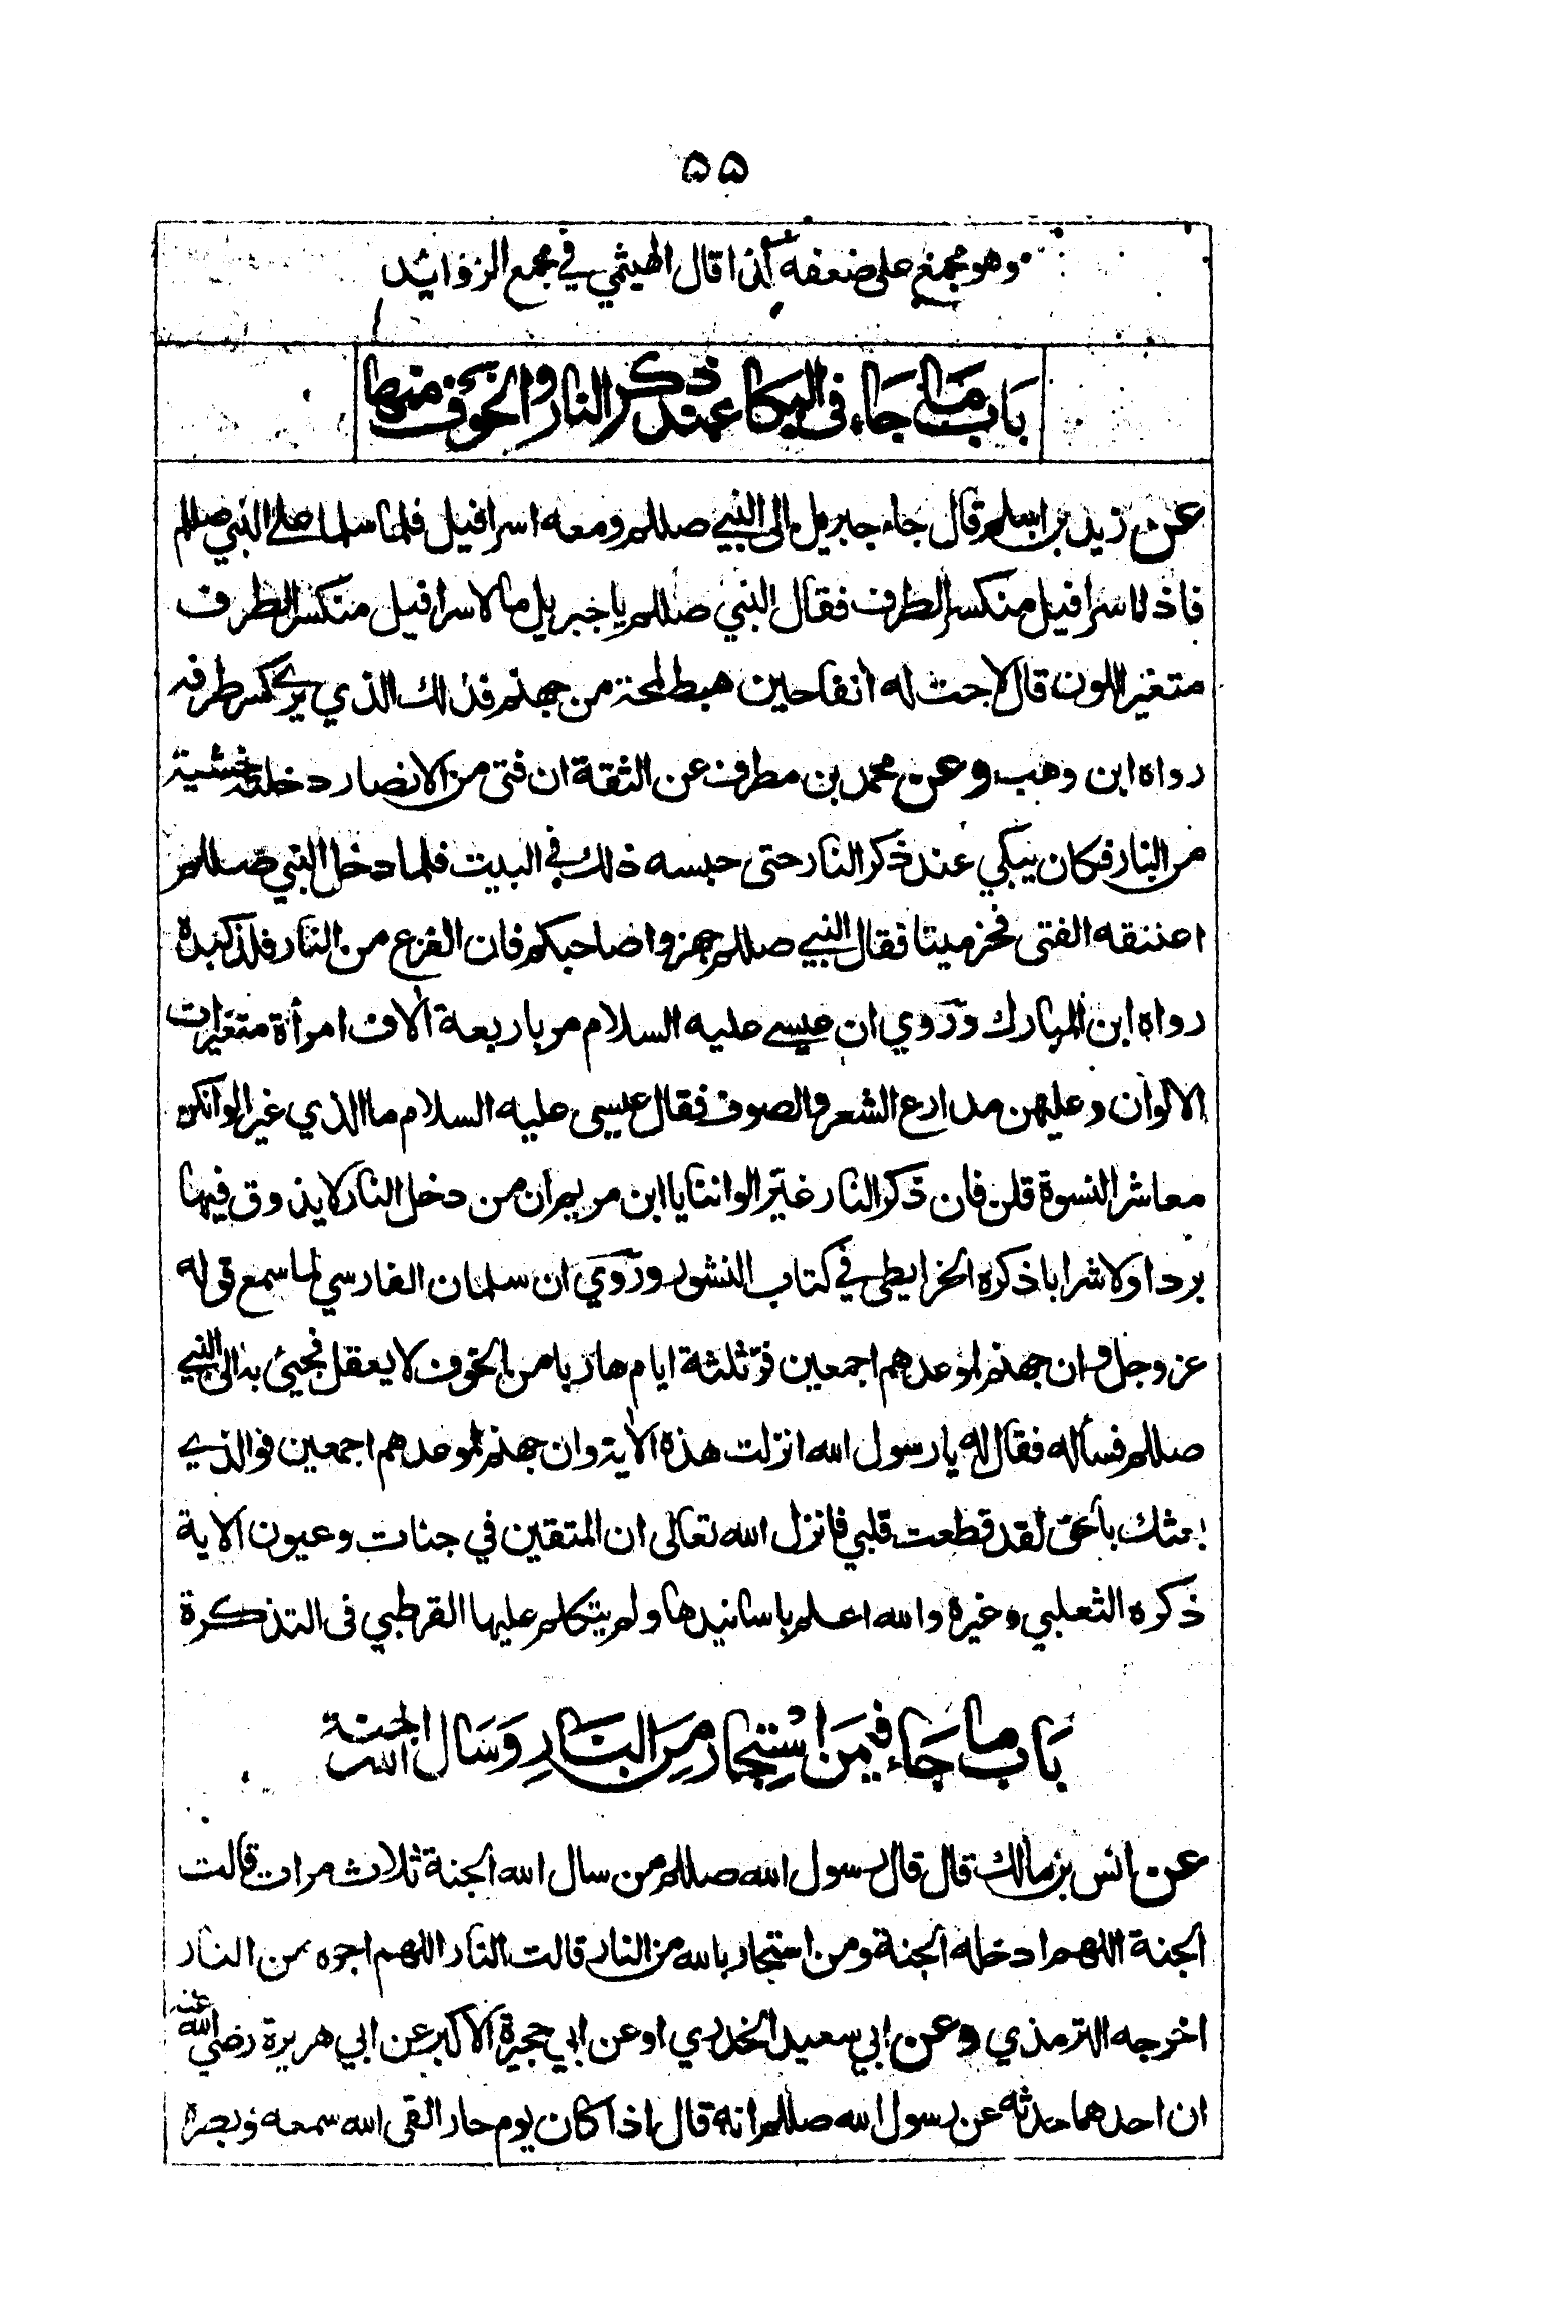 ۵۵
وهو مجمع على ضعفه كذا قال الهيثمي في مجمع الزوائد
باب ما جاء في البكا عند ذكر النار والخوف منها
عن زيد بن اسلم قال جاء جبريل الى النبي صللم ومعه اسرافيل فلما سلما على النبي صللم
فاذا اسرافيل منكسر الطرف فقال النبي صللم يا جبريل ما لاسرافيل منكسر الطرف
متغير اللون قال لاحت له آنفا حين هبط لمحة من جهنم فذلك الذي يرى كسر طرفه
رواه ابن وهب وعن محمد بن مطرف عن الثقة ان فتى من الانصار دخلته خشية
من النار فكان يبكي عند ذكر النار حتى حبسه ذلك في البيت فلما دخل النبي صللم
اعتنقه الفتى فخر ميتا فقال النبي صللم جهزوا صاحبكم فان الفزع من النار فلذ كبده
رواه ابن المبارك وروي ان عيسى عليه السلام مر باربعة آلاف امرأة متغيرات
الالوان وعليهن مدارع الشعر والصوف فقال عيسى عليه السلام ما الذي غير الوانكن
معاشر النسوة قلن فان ذكر النار غير الواننا يا ابن مريم ان من دخل النار لا يذوق فيها
بردا ولا شرابا ذكره الخرايطي في كتاب النشور وروي ان سلمان الفارسي لما سمع قوله
عز وجل وان جهنم لموعدهم اجمعين فر ثلثة ايام هاربا من الخوف لا يعقل فجيئ به الى النبي
صللم فسأله فقال له يا رسول الله انزلت هذه الآية وان جهنم لموعدهم اجمعين فوالذي
بعثك بالحق لقد قطعت قلبي فانزل الله تعالى ان المتقين في جنات وعيون الآية
ذكره الثعلبي وغيره والله اعلم باسانيدها ولم يتكلم عليها القرطبي في التذكرة
باب ما جاء فيمن استجار من النار وسال الله الجنة
عن انس بن مالك قال قال رسول الله صللم من سال الله الجنة ثلاث مرات قالت
الجنة اللهم ادخله الجنة ومن استجار بالله من النار قالت النار اللهم اجره من النار
اخرجه الترمذي وعن ابي سعيد الخدري او عن ابي حجيرة الاكبر عن ابي هريرة رضي الله عنه
ان احدهما حدثه عن رسول الله صللم انه قال اذا كان يوم حار القى الله سمعه وبصره